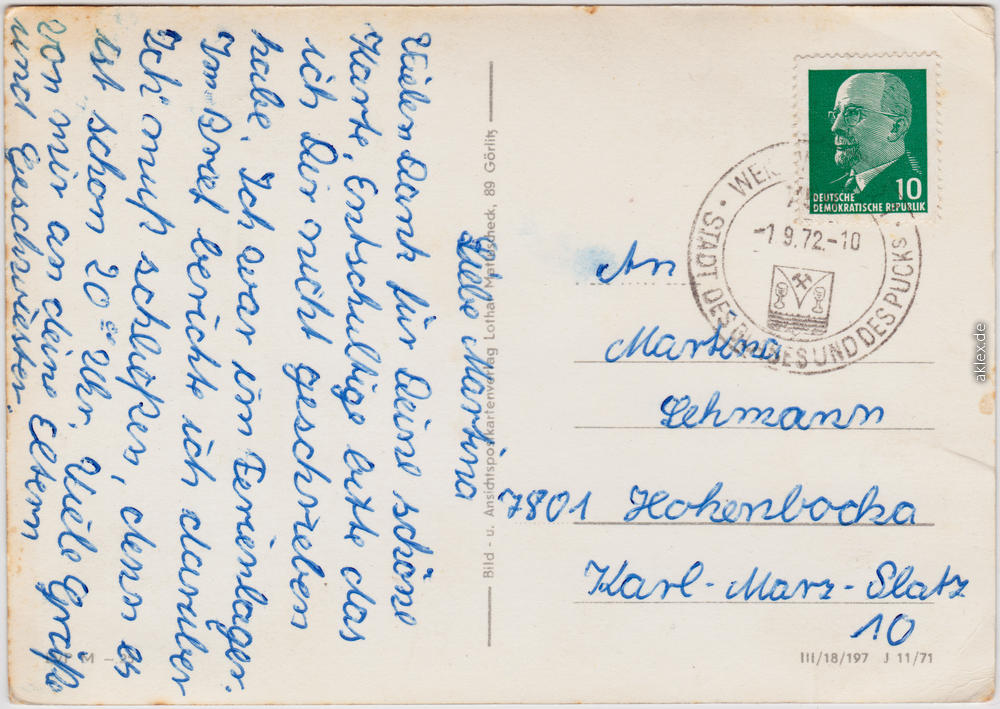 Liebe Martina
Vielen Dank für Deine schöne
Karte, Entschulbige bitte das
ich Dir nicht geschrieben
habe. Ich war im Ferienlager.
Im Brief berichte ich darüber
Ich muß schließen, denn es
ist schon 20 Uhr. Viele Grüße
von mir an deine Eltern
und Geschwister.
Bild- u. Ansichtspostkartenverlag Lothar Matuscheck, 89 Görlitz
10
DEUTSCHE
DEMOKRATISCHE REPUBLIK
-1.9.72.-10
STADT DES UND DES PUCKS
An
Martina
Lehmann
7801 Hohenbocka
Karl-Marx-Platz
10
III/18/197 J 11/71
M
aklex.de